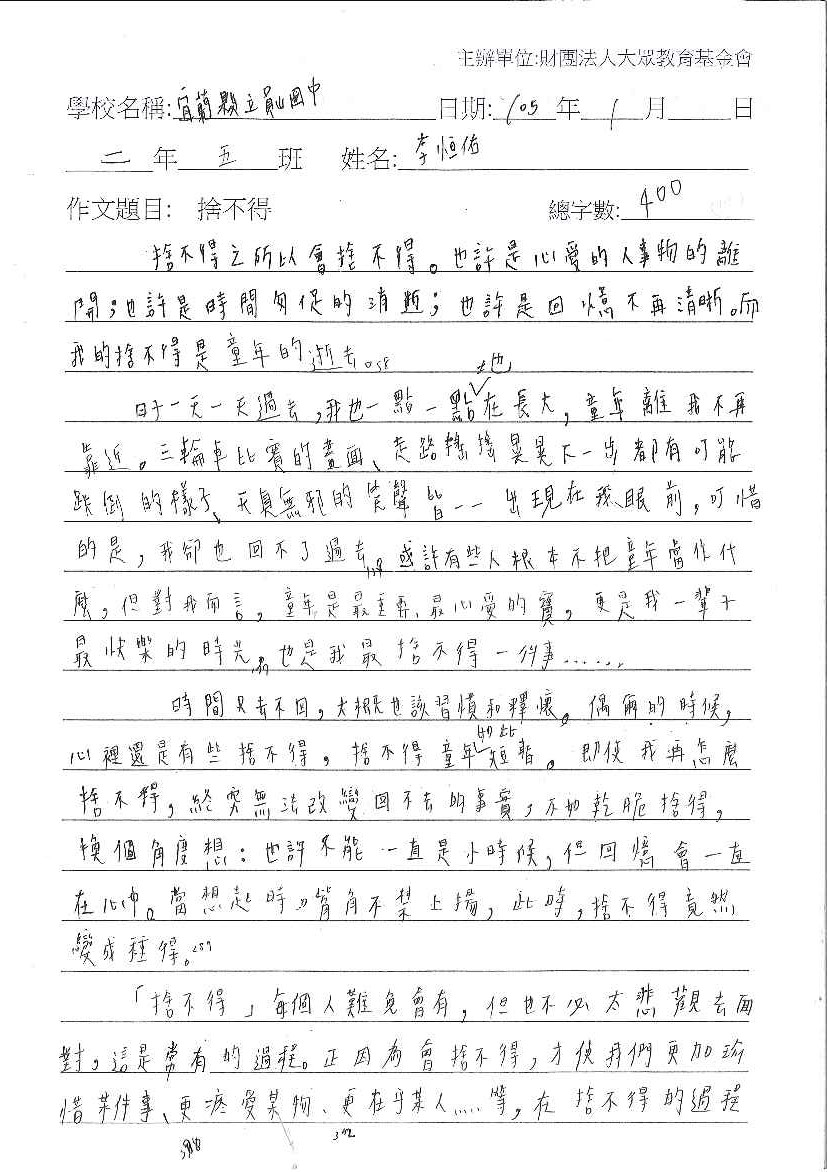 主辦單位:財團法人大眾教育基金會
學校名稱:宜蘭縣立員山國中 日期:105年1月 日
二年五班 姓名:李恒佑
作文題目: 捨不得 總字數:400
捨不得之所以會捨不得。也許是心愛的人事物的離
開;也許是時間匆促的消逝;也許是回憶不再清晰。而
我的捨不得是童年的逝去。58
日子一天一天過去,我也一點一點地在長大,童年離我不再
靠近。三輪車比賽的畫面、走路搖搖晃晃下一步都有可能
跌倒的樣子、天真無邪的笑聲皆一一出現在我眼前,可惜
的是,我卻也回不了過去。或許有些人根本不把童年當作什
麼,但對我而言,童年是最重要、最心愛的寶,更是我一輩子
最快樂的時光,也是我最捨不得一件事……
時間只去不回,大概也該習慣和釋懷。偶爾的時候,
心裡還是有些捨不得,捨不得童年的短暫。即使我再怎麼
捨不得,終究無法改變回不去的事實,不如乾脆捨得,
換個角度想:也許不能一直是小時候,但回憶會一直
在心中。當想起時,嘴角不禁上揚,此時,捨不得竟然
變成種得。289
「捨不得」每個人難免會有,但也不必太悲觀去面
對,這是常有的過程。正因為會捨不得,才使我們更加珍
惜某件事、更疼愛某物、更在乎某人……等,在捨不得的過程
388 372